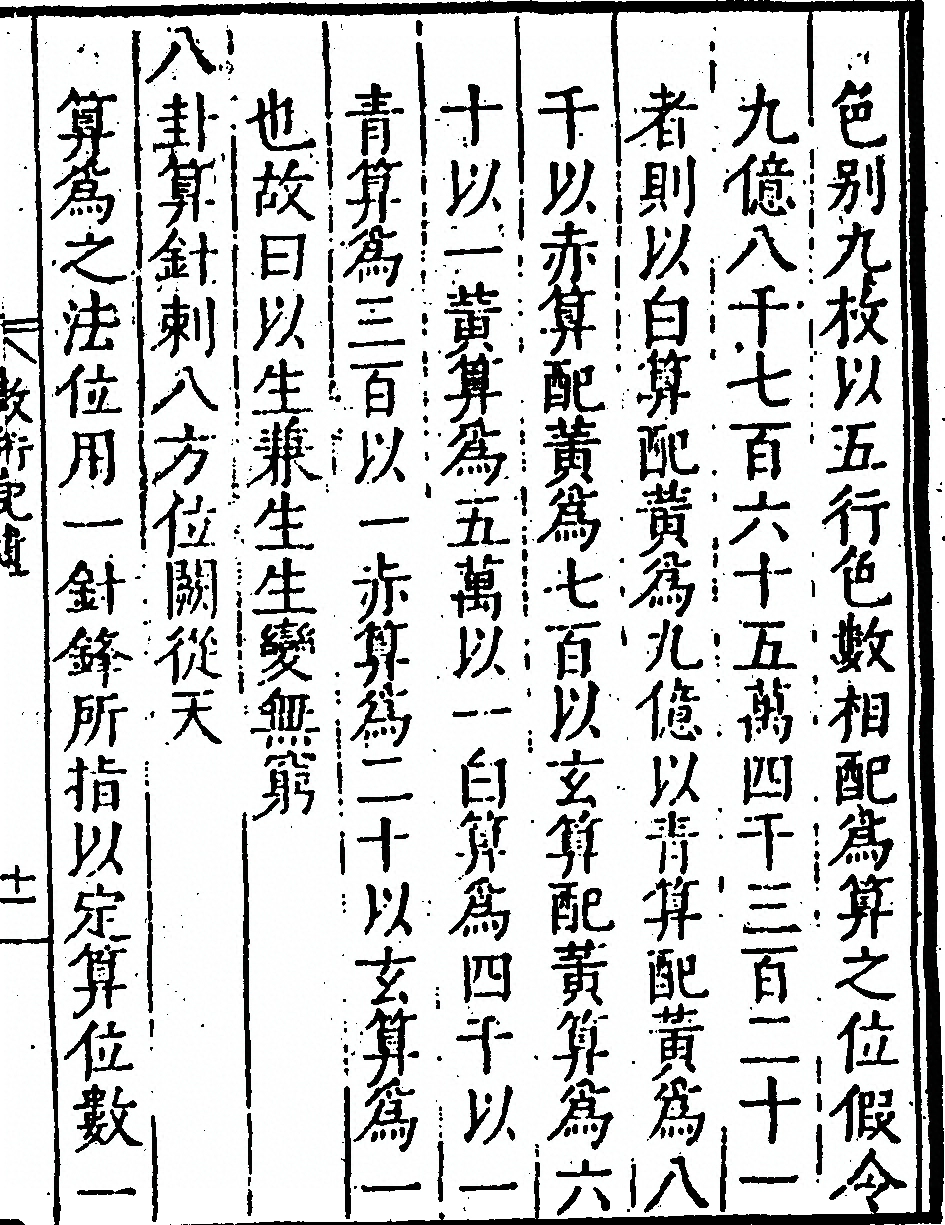 色别九枚以五行色數相配爲算之位假令
九億八千七百六十五萬四千三百二十一
者則以白算配黃爲九億以青算配黃爲八
千以赤算配黃爲七百以玄算配黃算爲六
十以一黃算爲五萬以一白算爲四千以一
青算爲三百以一赤算爲二十以玄算爲一
也故曰以生兼生生變無窮
八卦算針刺八方位闕從天
算爲之法位用一針鋒所指以定算位數一
數術記遺
十一